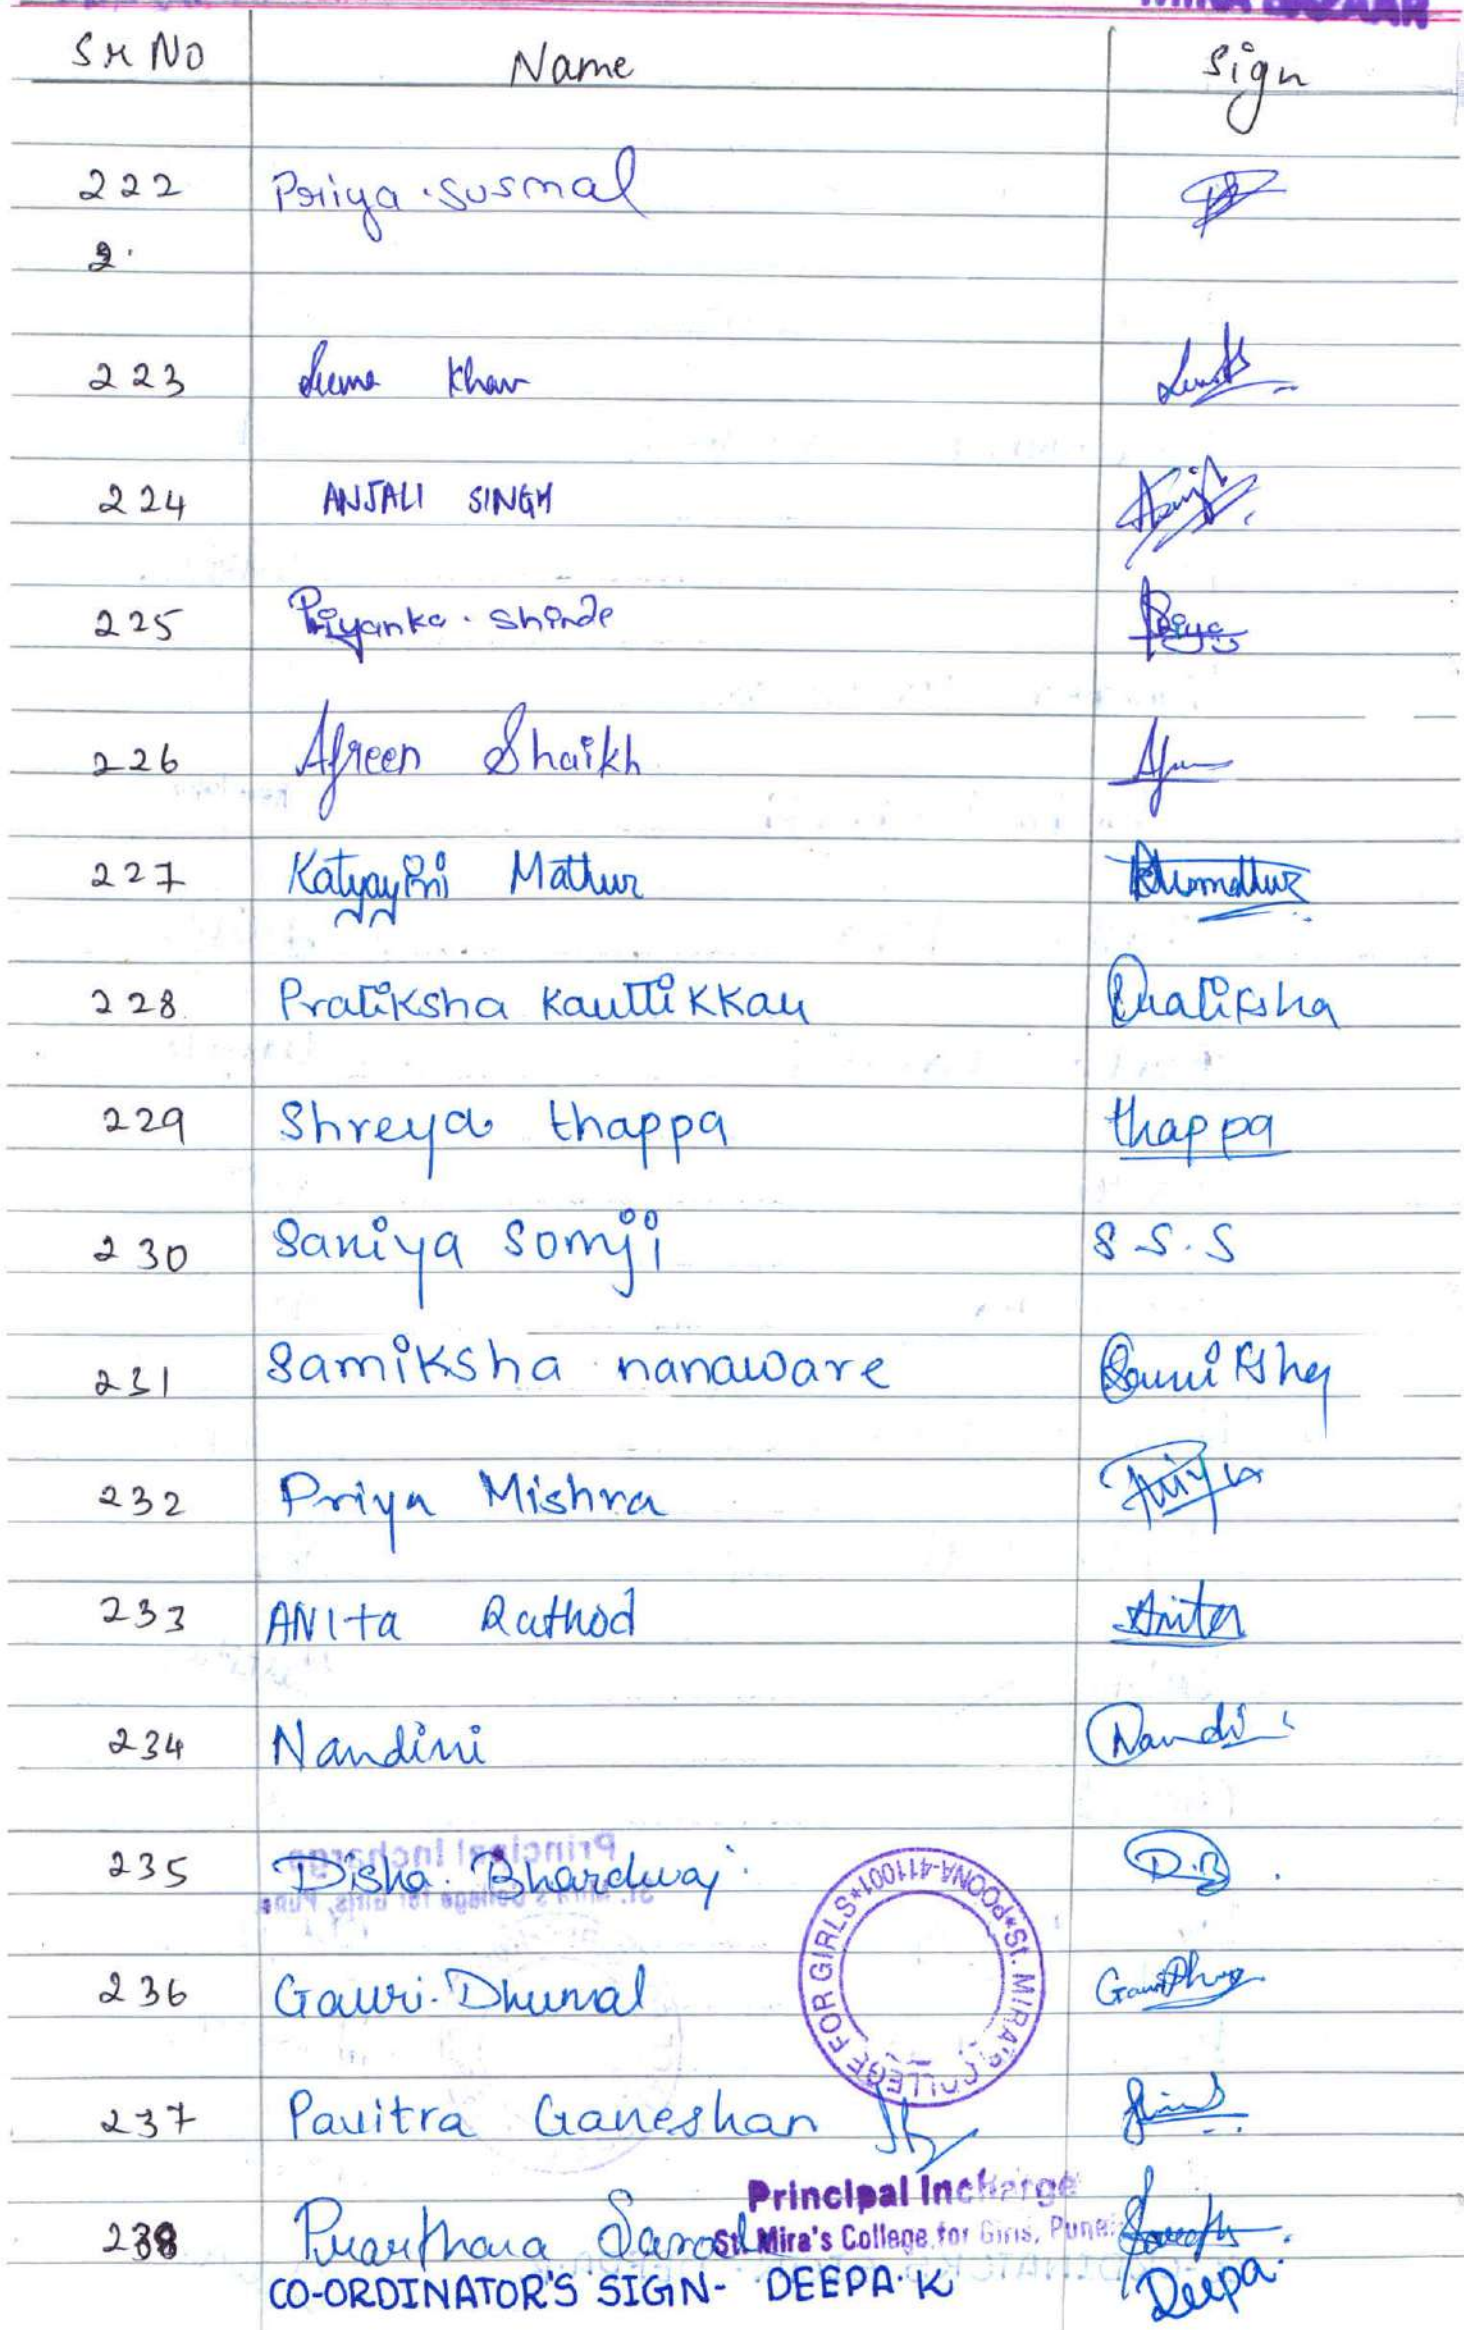 MIRA BAZAAR
Sr No Name Sign
222 Priya . Susmal
2.
223 Khan
224 ANJALI SINGH
225 Priyanka . Shinde Priya
226 Afreen Shaikh
227 Katyayini Mathur
228 Pratiksha Kauttikkau Pratiksha
229 Shreya thappa thappa
230 Saniya Somji S S. S
231 Samiksha nanaware Samiksha
232 Priya Mishra Priya
233 ANITa Rathod Anita
234 Nandini Nandi
235 Disha . Bhardwaj D.B
236 Gauri . Dhumal
237 Pavitra Ganeshan
St. MIRA'S COLLEGE FOR GIRLS*POONA-411001*
Principal Incharge
St. Mira's College for Girls, Pune
238 Prarthana Sarode
CO-ORDINATOR'S SIGN- DEEPA.K Deepa.